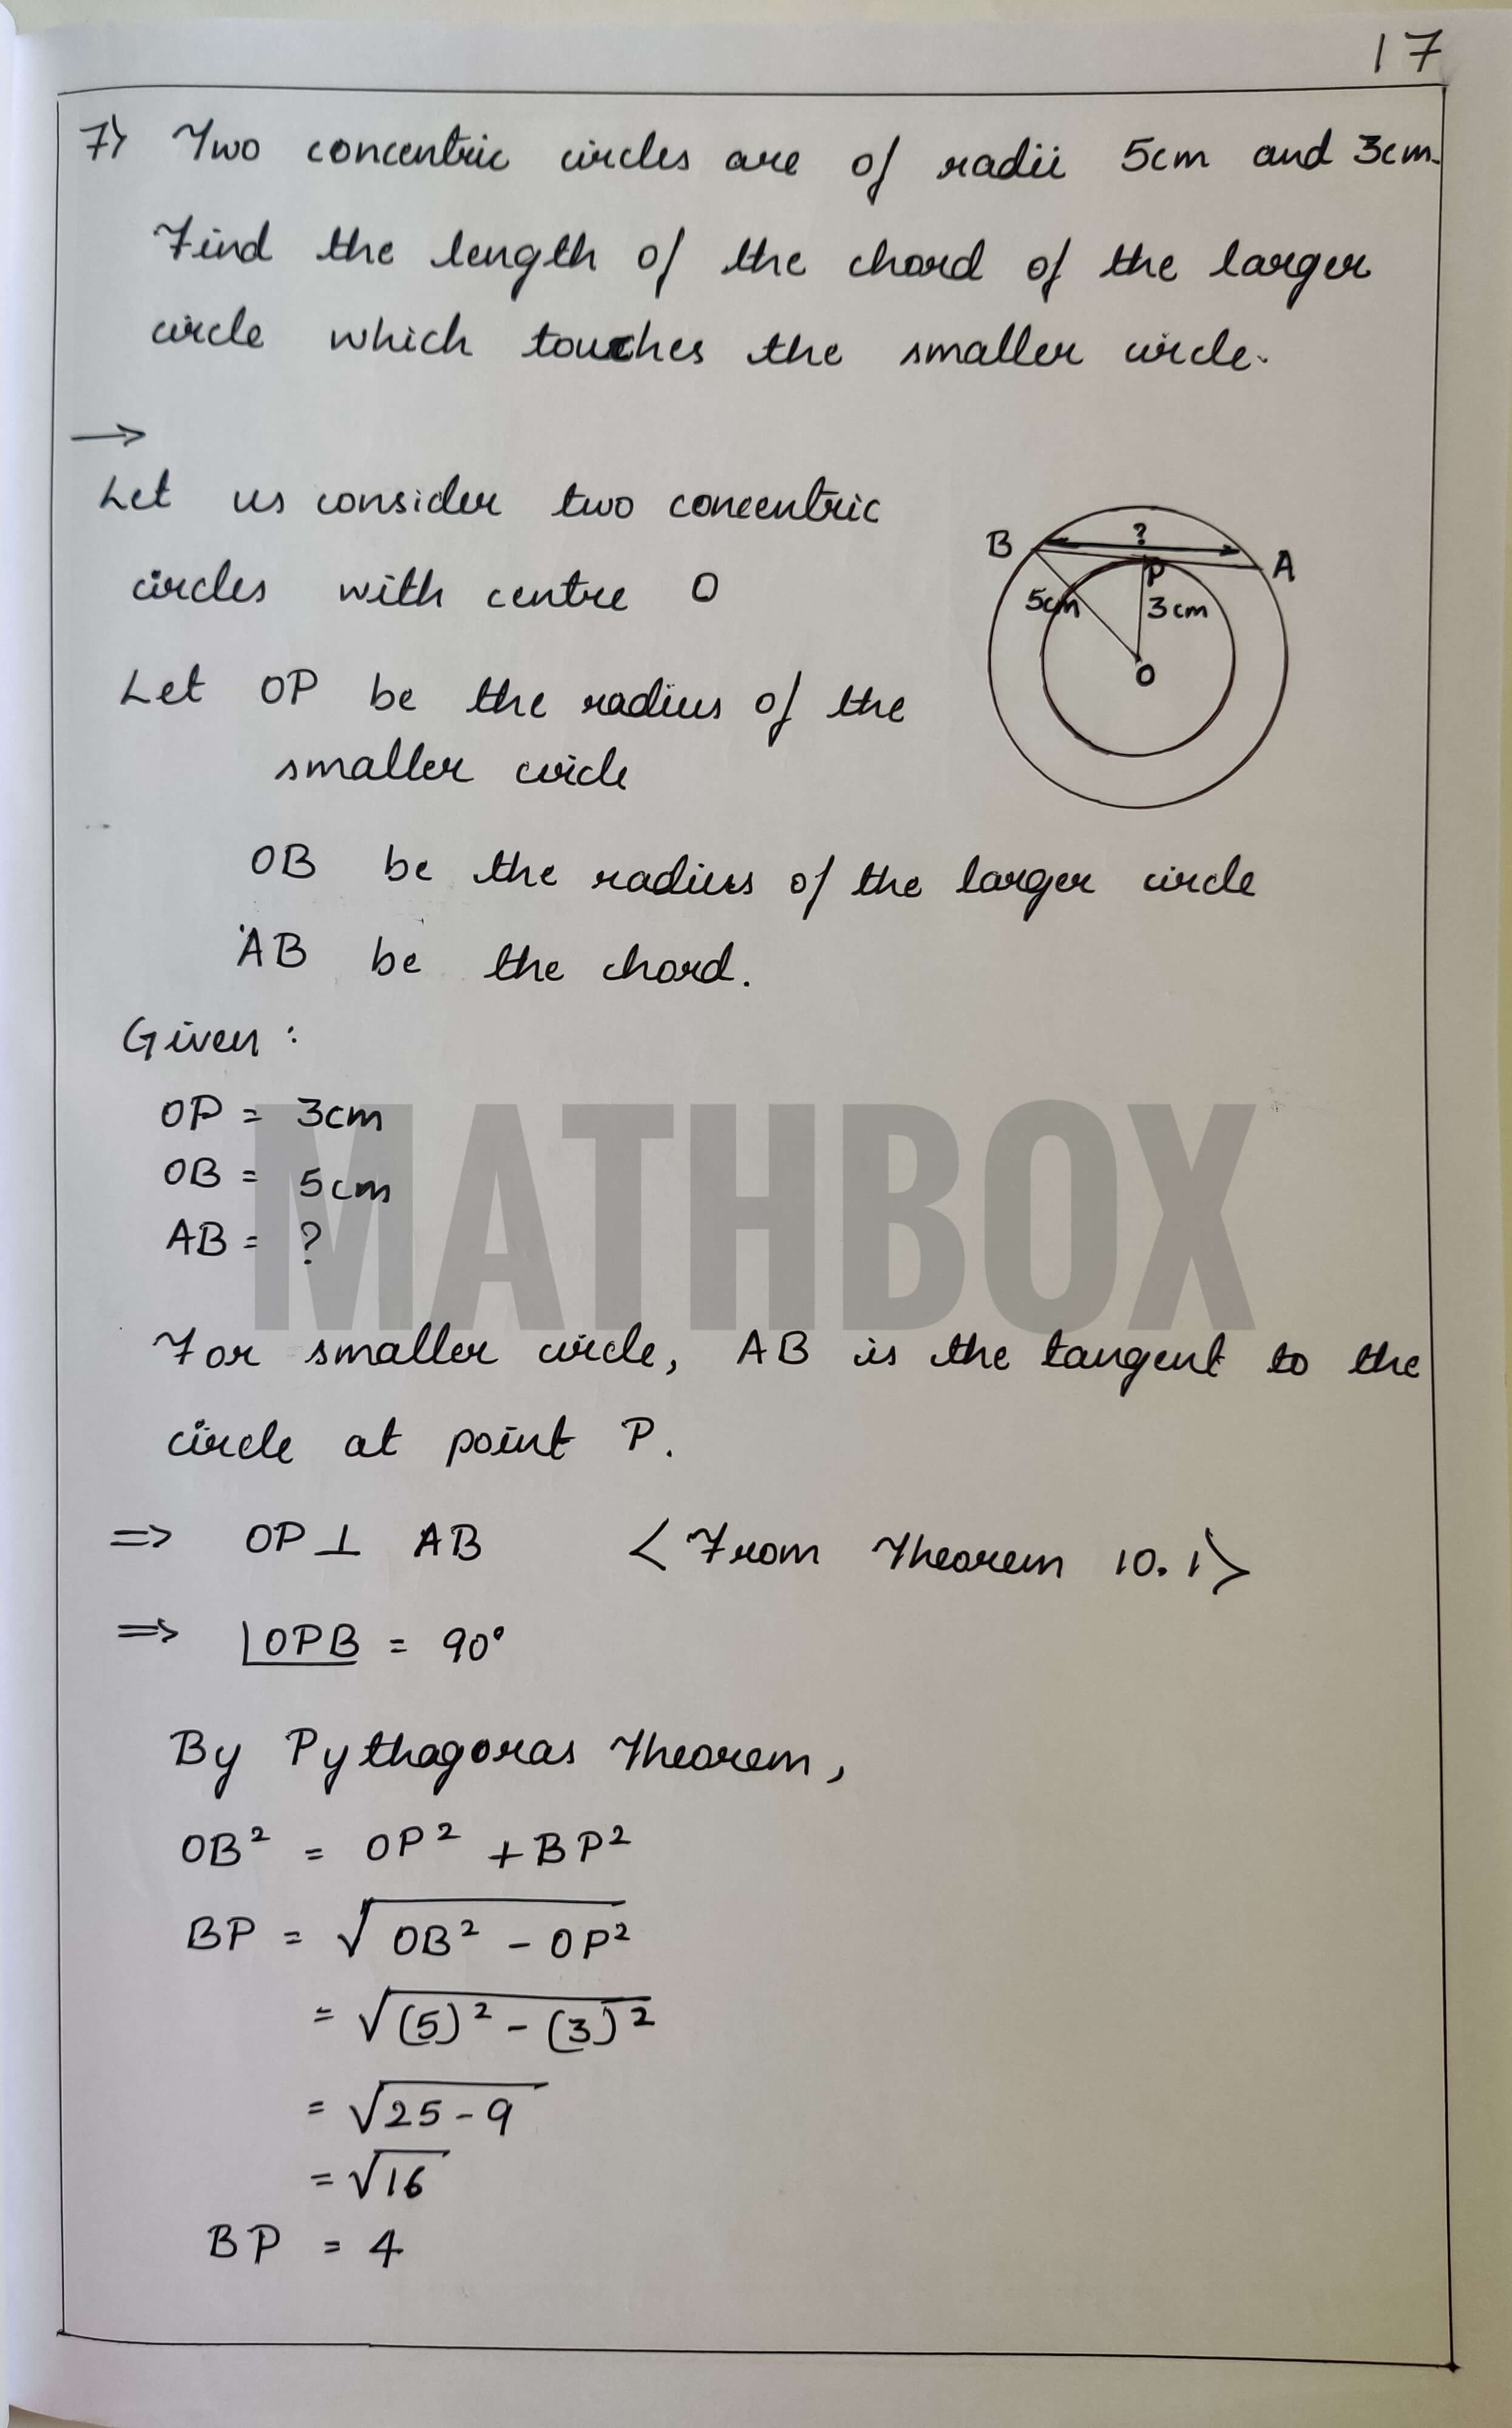 17
7) Two concentric circles are of radii 5cm and 3cm.
Find the length of the chord of the larger
circle which touches the smaller circle.
→
Let us consider two concentric
circles with centre O
Let OP be the radius of the
smaller circle
OB be the radius of the larger circle
AB be the chord.
B ? A
P
5cm 3cm
O
Given :
OP = 3cm
OB = 5cm
AB = ?
MATHBOX
For smaller circle, AB is the tangent to the
circle at point P.
=> OP ⊥ AB <From Theorem 10.1>
=> ∠OPB = 90°
By Pythagoras Theorem,
OB² = OP² + BP²
BP = √OB² - OP²
= √(5)² - (3)²
= √25 - 9
= √16
BP = 4